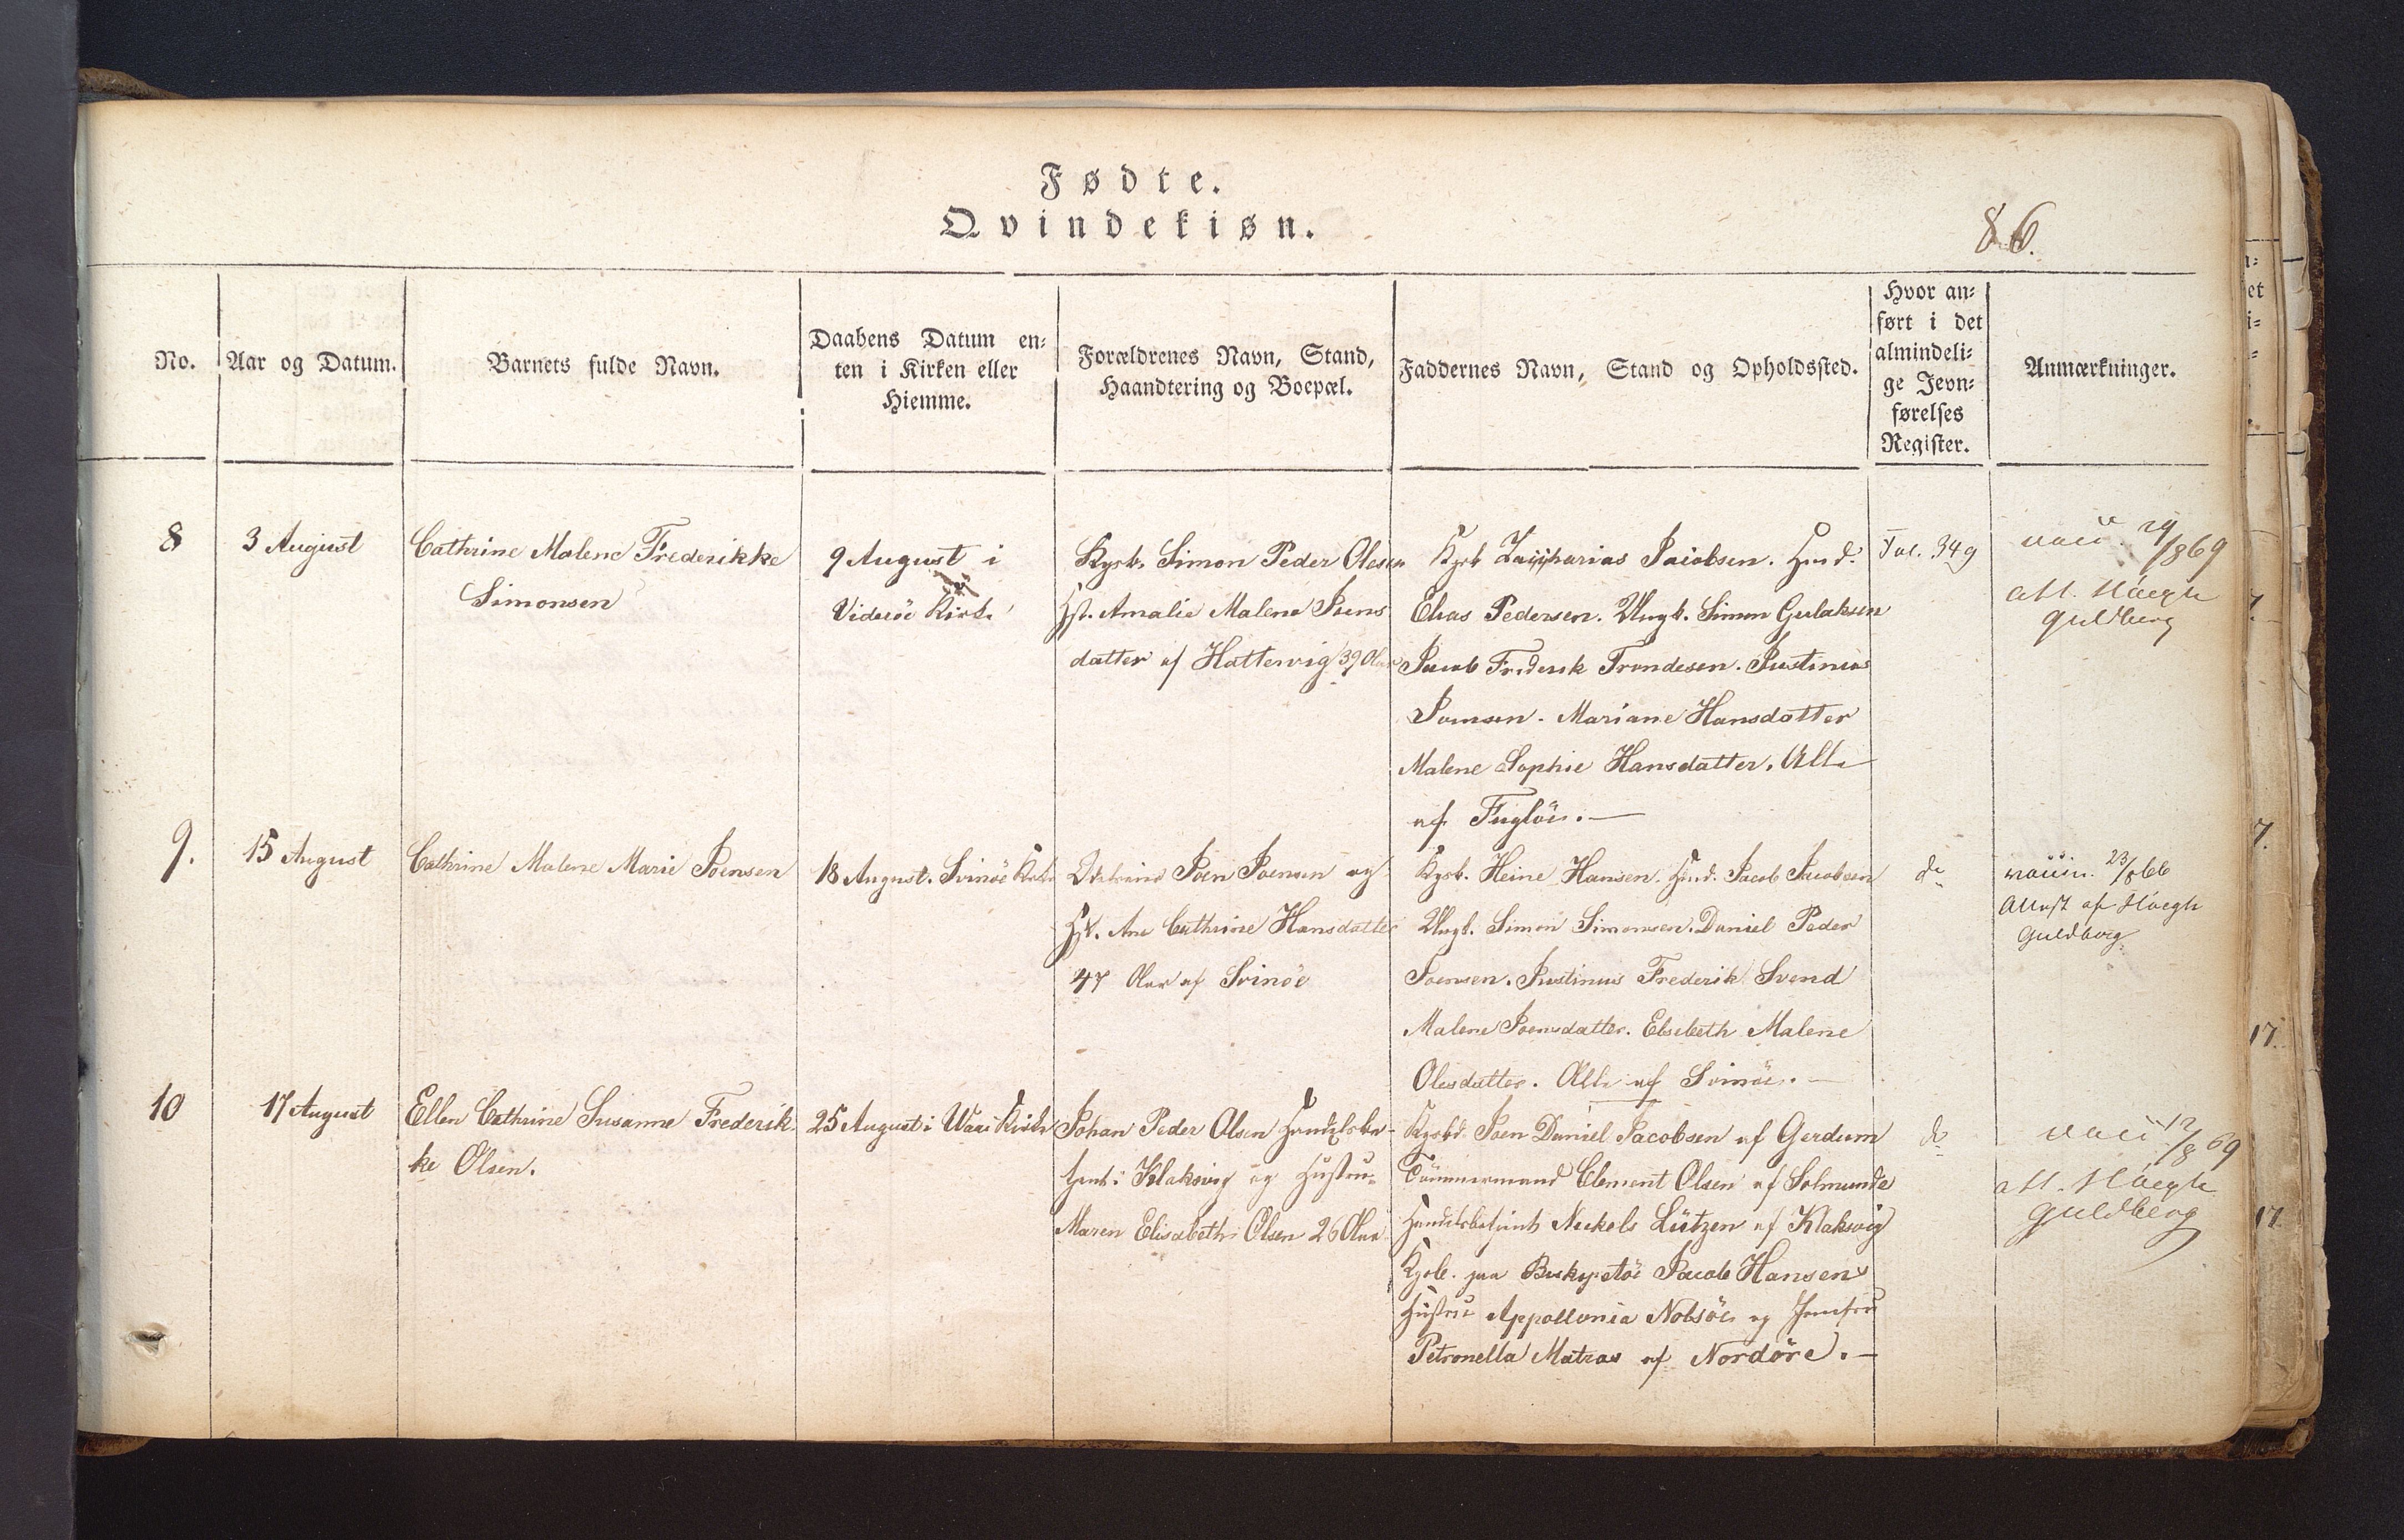 Fødte.
Qvindekiøn.
86.
No.
Aar og Datum.
Barnets fulde Navn.
Daabens Datum en-
ten i Kirken eller
Hiemme.
Forældrenes Navn, Stand,
Haandtering og Boepæl.
Faddernes Navn, Stand og Opholdssted.
Hvor an-
ført i det
almindeli-
ge Jevn-
førelses
Register.
Anmærkninger.
8
3 August
Cathrine Malene Frederikke
Simonsen
9 August i
Videröe Kirke
Kgsb. Simon Peder Olesen
Hst. Amalie Malene Joens
datter af Hattervig 39 Aar
Kgsb Zacharias Jacobsen. Huusmd.
Elias Pedersen. Ungk. Simon Gulaksen
Jacob Frederik Trondesen. Justinus
Joensen. Mariane Hansdatter
Malene Sophie Hansdatter. Alle
af Fuglöe.
Fol. 349
vacc. 29/869
att. Höegh
Guldberg
9.
15 August
Cathrine Malene Marie Joensen
18 August. Svinöe Kirke
Joen Joensen og
Hst. Ane Cathrine Hansdatter
47 Aar af Svinöe
Kgsb. Heine Hansen. Jacob Jacobsen
Ungk. Simon Simonsen. Daniel Peder
Joensen. Justinus Frederik Svend
Malene Joensdatter. Elsebeth Malene
Olesdatter. Alle af Svinöe.
do
vaccin. 23/866
Attest af Höegh
Guldberg
10
17 August
Ellen Cathrine Susanne Frederik-
ke Olsen.
25 August i Waai Kirke
Johan Peder Olsen Handelsbe-
tjent i Klaksvig og Hustru
Maren Elisabeth Olsen 26 Aar
Kgsbd. Joen Daniel Jacobsen af Gerdum
Tömmermand Clement Olsen af Solmunde
Handelsbetjent Neckels Lützen af Klaksvig
Kgsb. paa Biskopstöe Jacob Hansens
Hustru Appollonia Nolsöe og Jomfru
Petronella Matras af Nordöre.
do
vacc. 12/8 69
att. Höegh
Guldberg
7.
7.
17.
17.